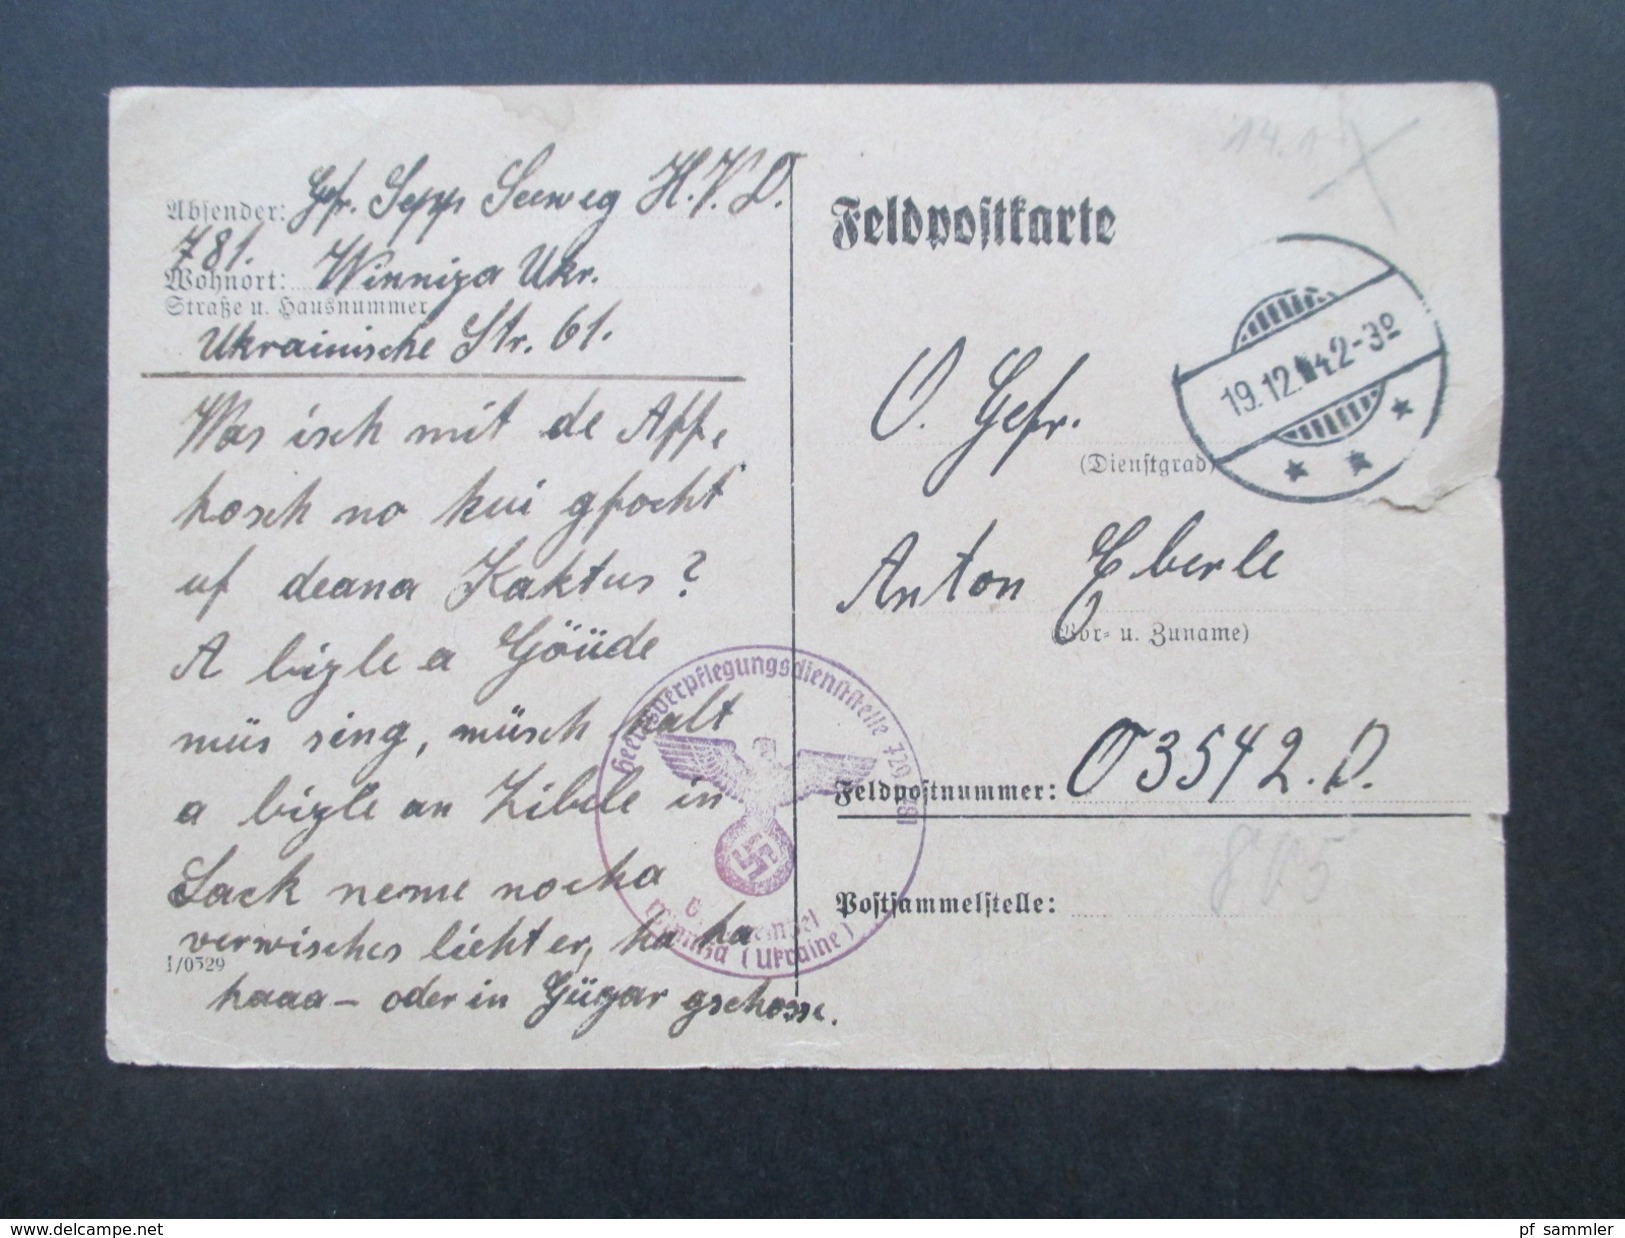 Absender: Gfr. Sepp Seeweg H.V.D.
781.
Wohnort: Winniza Ukr.
Straße u. Hausnummer
Ukrainische Str. 61.
Was isch mit de Aff,
hosch no kui gfocht
uf deana Kaktus?
A bizle a Göüde
müs sing, müsch halt
a bizle an Zibele in
Sack neme nocha
verwisches liehter, ha ha
1/0529
haaa – oder in Gügar gschosse.
Feldpostkarte
14.
19.12.42.-3
O. Gefr.
(Dienstgrad)
Anton Eberle
(Vor- u. Zuname)
Feldpostnummer: 03542.D.
Postsammelstelle:
Heeresverpflegungsdienststelle 720 781
Winniza (Ukraine)
pf sammler
www.delcampe.net